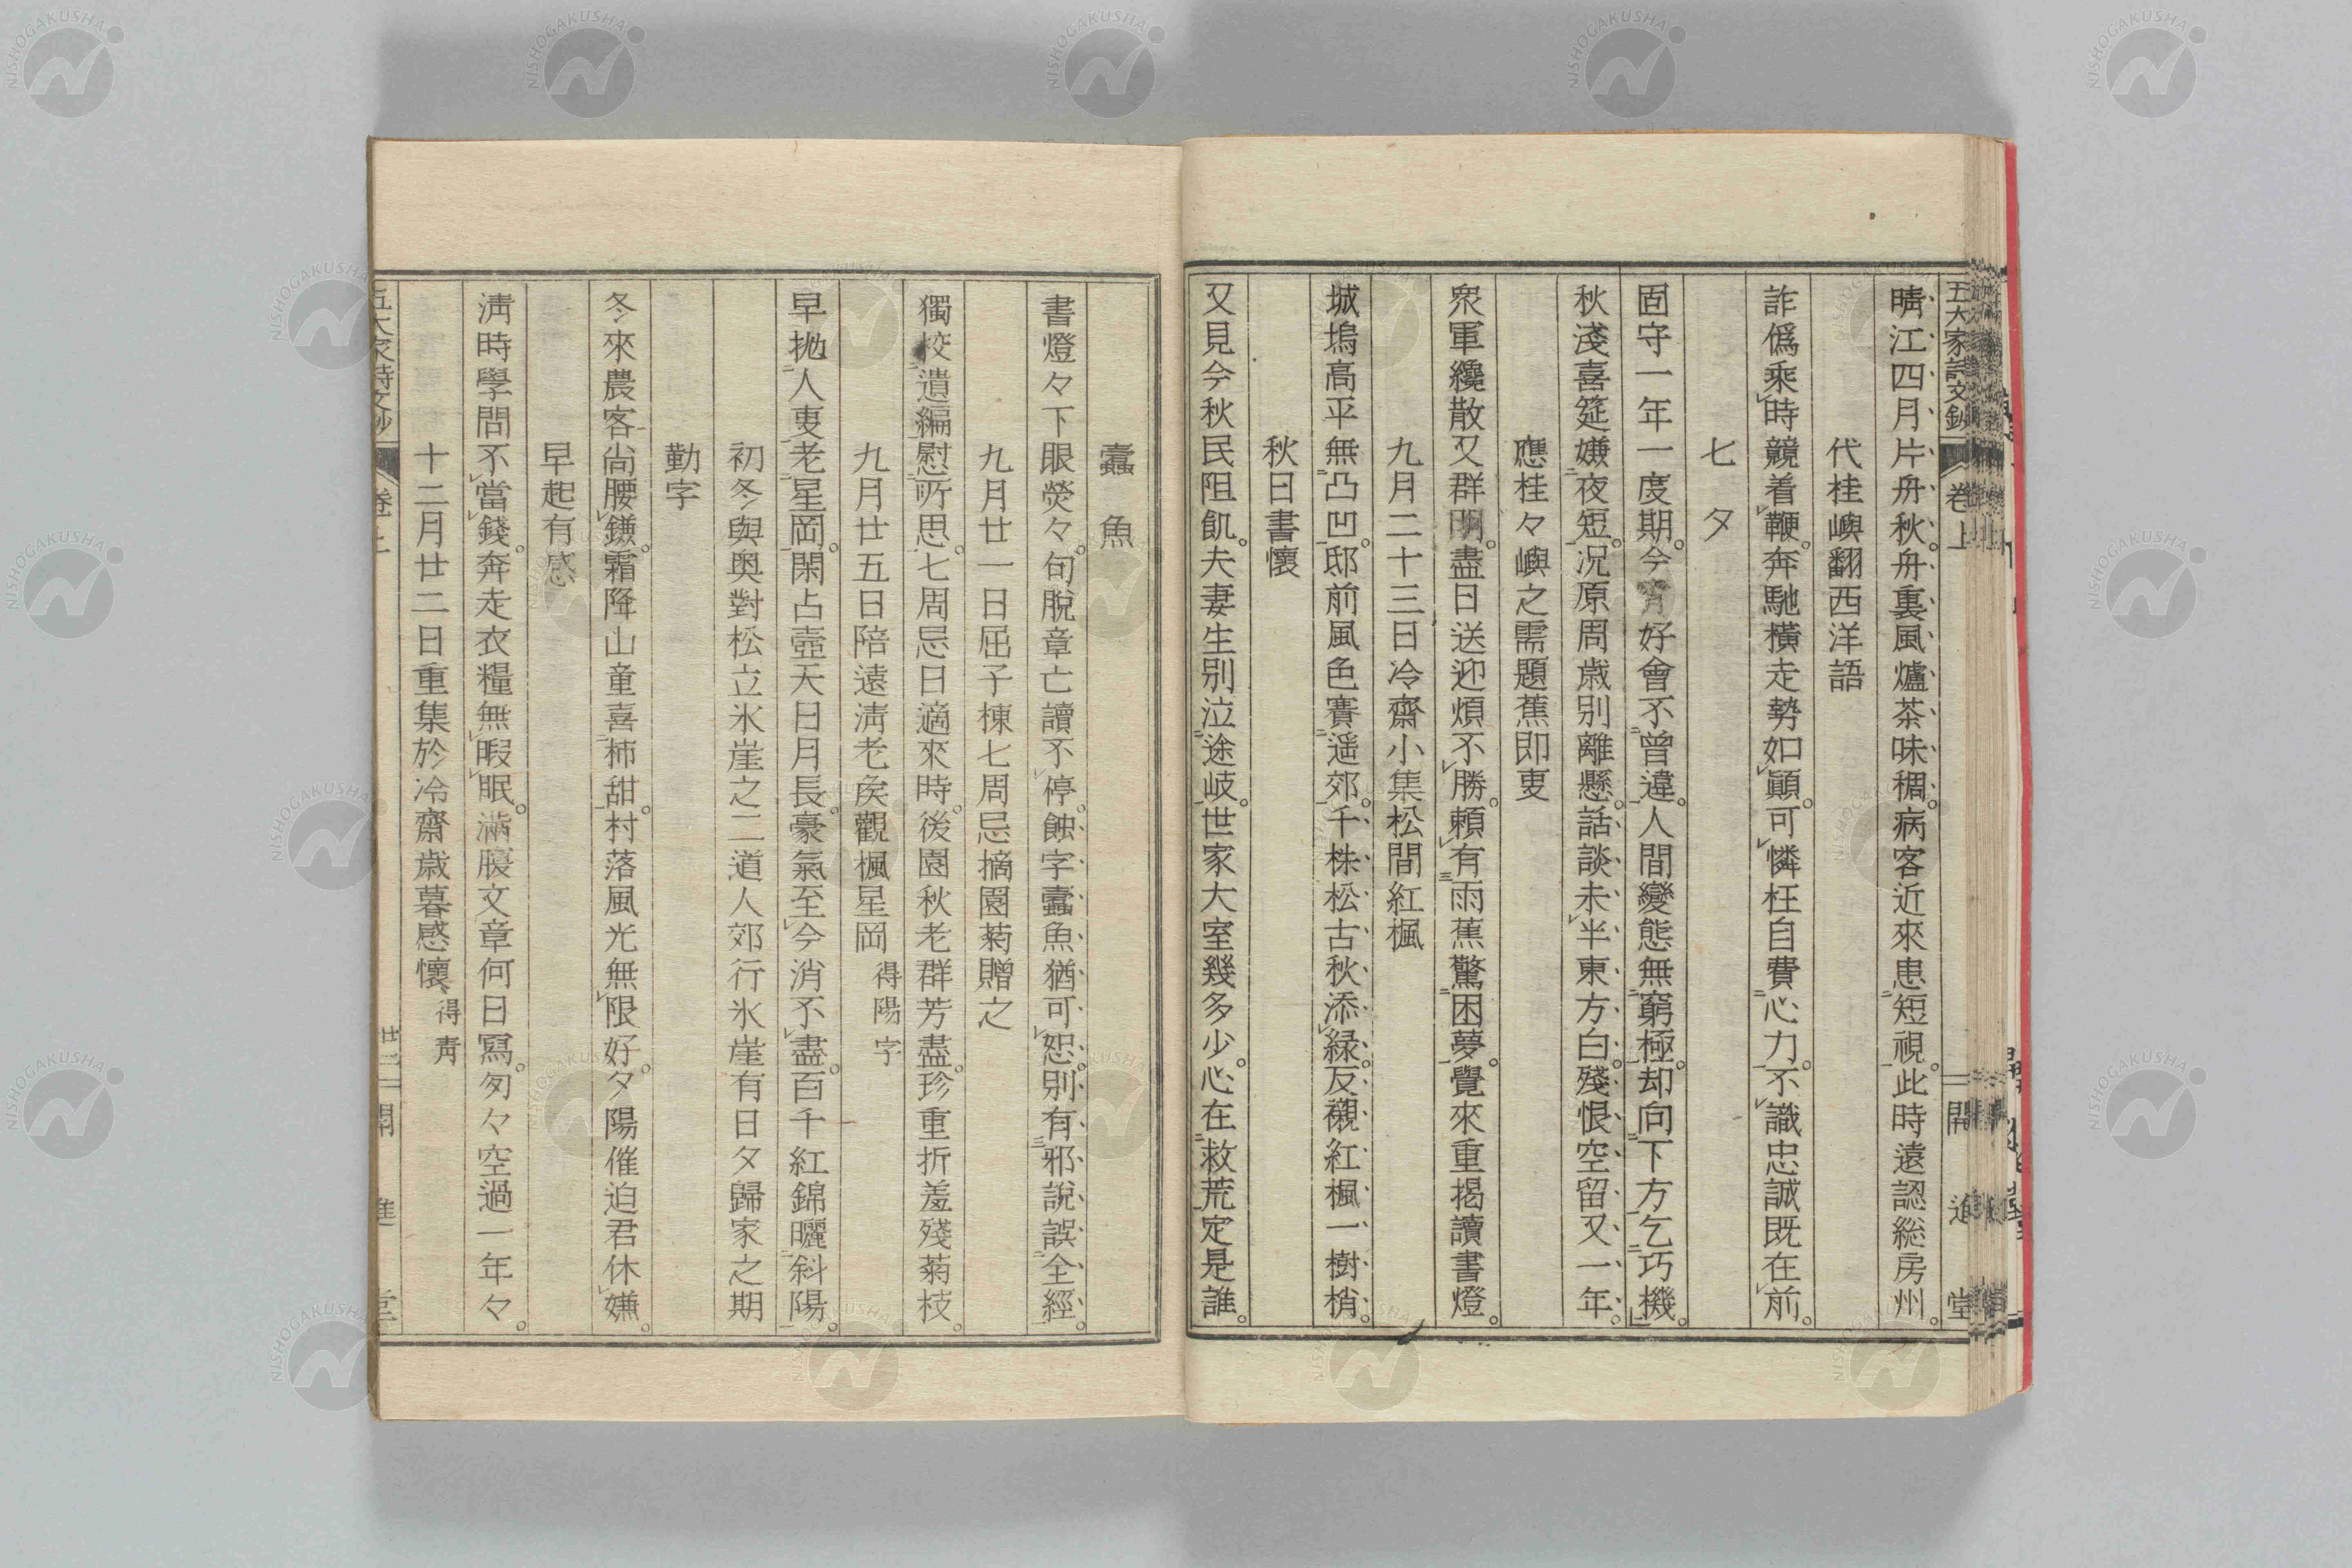 五大家詩文鈔 卷上 開進堂
晴江四月片舟秋。舟裏風爐茶味稠。病客近來患短視。此時遠認総房州。
代桂嶼翻西洋語
詐僞乘時競着鞭。奔馳橫走勢如顚。可憐枉自費心力。不識忠誠既在前。
七夕
固守一年一度期。今宵好會不曾違。人間變態無窮極。却向下方乞巧機。
秋淺喜筵嫌夜短。况原周歳別離懸。話談未半東方白。殘恨空留又一年。
應桂々嶼之需題蕉即叓
衆軍纔散又群朋。盡日送迎煩不勝。頼有雨蕉驚困夢。覺來重揭讀書燈。
九月二十三日冷齋小集松間紅楓
城塢高平無凸凹。邸前風色賽遥郊。千株松古秋添緑。反襯紅楓一樹梢。
秋日書懷
又見今秋民阻飢。夫妻生別泣途岐。世家大室幾多少。心在救荒定是誰。
蠹魚
書燈々下眼熒々。句脫章亡讀不停。蝕字蠹魚猶可恕。別有邪說誤全經。
九月廿一日屈子棟七周忌摘園菊贈之
獨校遺編慰所思。七周忌日適來時。後園秋老群芳盡。珍重折羞殘菊枝。
九月廿五日陪遠淸老矦觀楓星岡 得陽字
早抛人叓老星岡。閑占壺天日月長。豪氣至今消不盡。百千紅錦曬斜陽。
初冬與奥對松立氷崖之二道人郊行氷崖有日夕歸家之期
勤字
冬來農客尚腰鎌。霜降山童喜柿甜。村落風光無限好。夕陽催迫君休嫌。
早起有感
淸時學問不當錢。奔走衣糧無暇眠。滿腹文章何日寫。匆々空過一年々。
十二月廿二日重集於冷齋歳暮感懷 得靑
五大家詩文鈔 卷上 廿三 開進堂